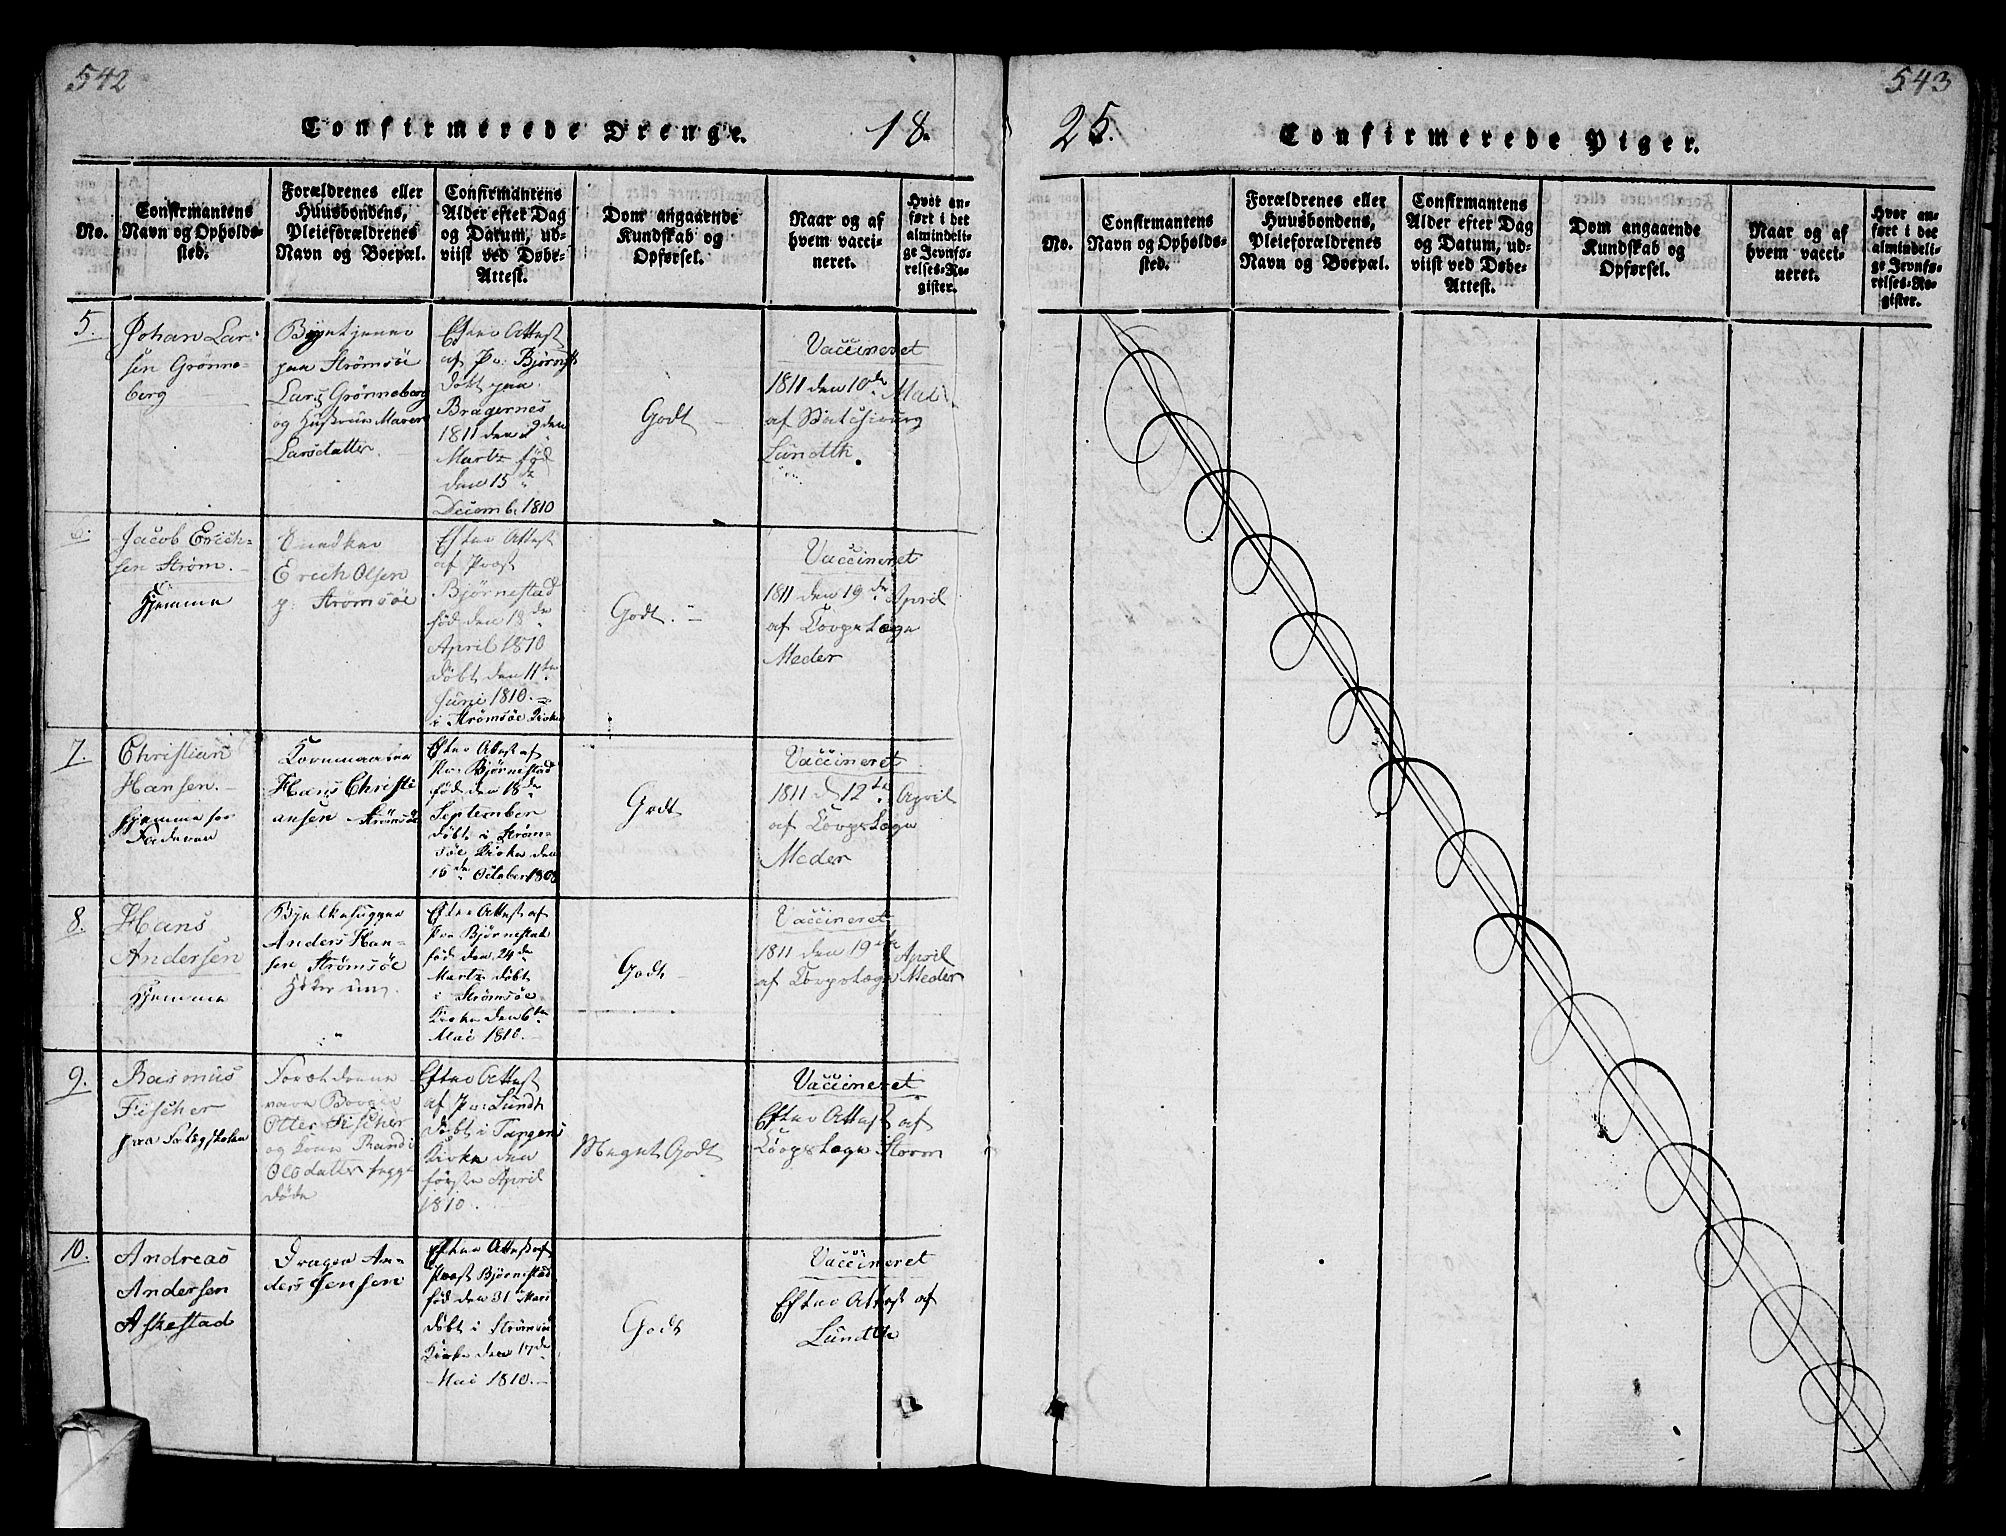 542
Confirmerede Drenge.
18.
No.
Confirmantens
Navn og Opholds-
sted.
Forældrenes eller
Huusbondens,
Pleieforældrenes
Navn og Boepæl.
Confirmantens
Alder efter Dag
og Datum, ud-
viist ved Døbe-
Attest.
Dom angaaende
Kundskab og
Opførsel.
Naar og af
hvem vacci-
neret.
Hvor an-
ført i det
almindeli-
ge Jevnfø-
relses-Re-
gister.
5.
Johan Lar-
sen Grønne-
berg
Bye tjener
paa Strømsøe
Lars Grønneberg
og Hustrue Maren
Larsdatter.
Efter Attest
af Pr: Bjørnst
døbt paa
Bragernes
1811 den 29den
Martz fød
den 15de
Decemb. 1810
Godt
Vaccineret
1811 den 10de Mai
af
Lundth.
6.
Jacob Erich-
sen Strøm.
Hjemme
Snedker
Erich Olsen
p: Strømsøe
Efter Attest
af Præst
Bjørnestad
fød den 18de
April 1810
døbt den 11te
Juni 1810.
i Strømsøe Kirke
Godt.
Vaccineret
1811 den 19de April
af CorpsLæge
Meder
7.
Christian
Hansen.
hjemme hos
Faderen
Kornmaaler
Hans Christi
ansen Strømsøe
Efter Attest af
Pr: Bjørnestad
fød den 18de
September
døbt i Strøm-
søe Kirke den
16de October 1808
Godt
Vaccineret
1811 d 12te April
af CorpsLæge
Meder
8.
Hans
Andersen
Hjemme
Bjelkehugger
Anders Han-
sen Strømsøe
Efter Attest af
Pr: Bjørnestad
fød den 24de
Martz døbt
i Strømsøe
Kirke den 6te
Mai 1810.
Godt
Vaccineret
1811 den 19de April
af CorpsLæge Meder
9.
Rasmus
Fischer
paa Fattigskolen
Forældrene
vare Borger
Otter Fischer
og Kone Randi
Olsdatter begge
døde
Efter Attest
af Pr: Lundh
døbt i Tangens
Kirke den
første April
1810.
Meget Godt
Vaccineret
Efter Attest af
CorpsLæge Storm
10.
Andreas
Andersen
Askestad
Drager An-
ders Jensen
Efter Attest af
Præst Bjørnestad
fød den 31 Mars
døbt i Strømsøe
Kirke den 17de
Mai 1810.
Godt
Vaccineret
Efter Attest af
Lundth
543
25.
Confirmerede Piger.
No.
Confirmantens
Navn og Opholds-
sted.
Forældrenes eller
Huusbondens,
Pleieforældrenes
Navn og Boepæl.
Confirmantens
Alder efter Dag
og Datum, ud-
viist ved Døbe-
Attest.
Dom angaaende
Kundskab og
Opførsel.
Naar og af
hvem vacci-
neret.
Hvor an-
ført i det
almindeli-
ge Jevnfø-
relses-Re-
gister.